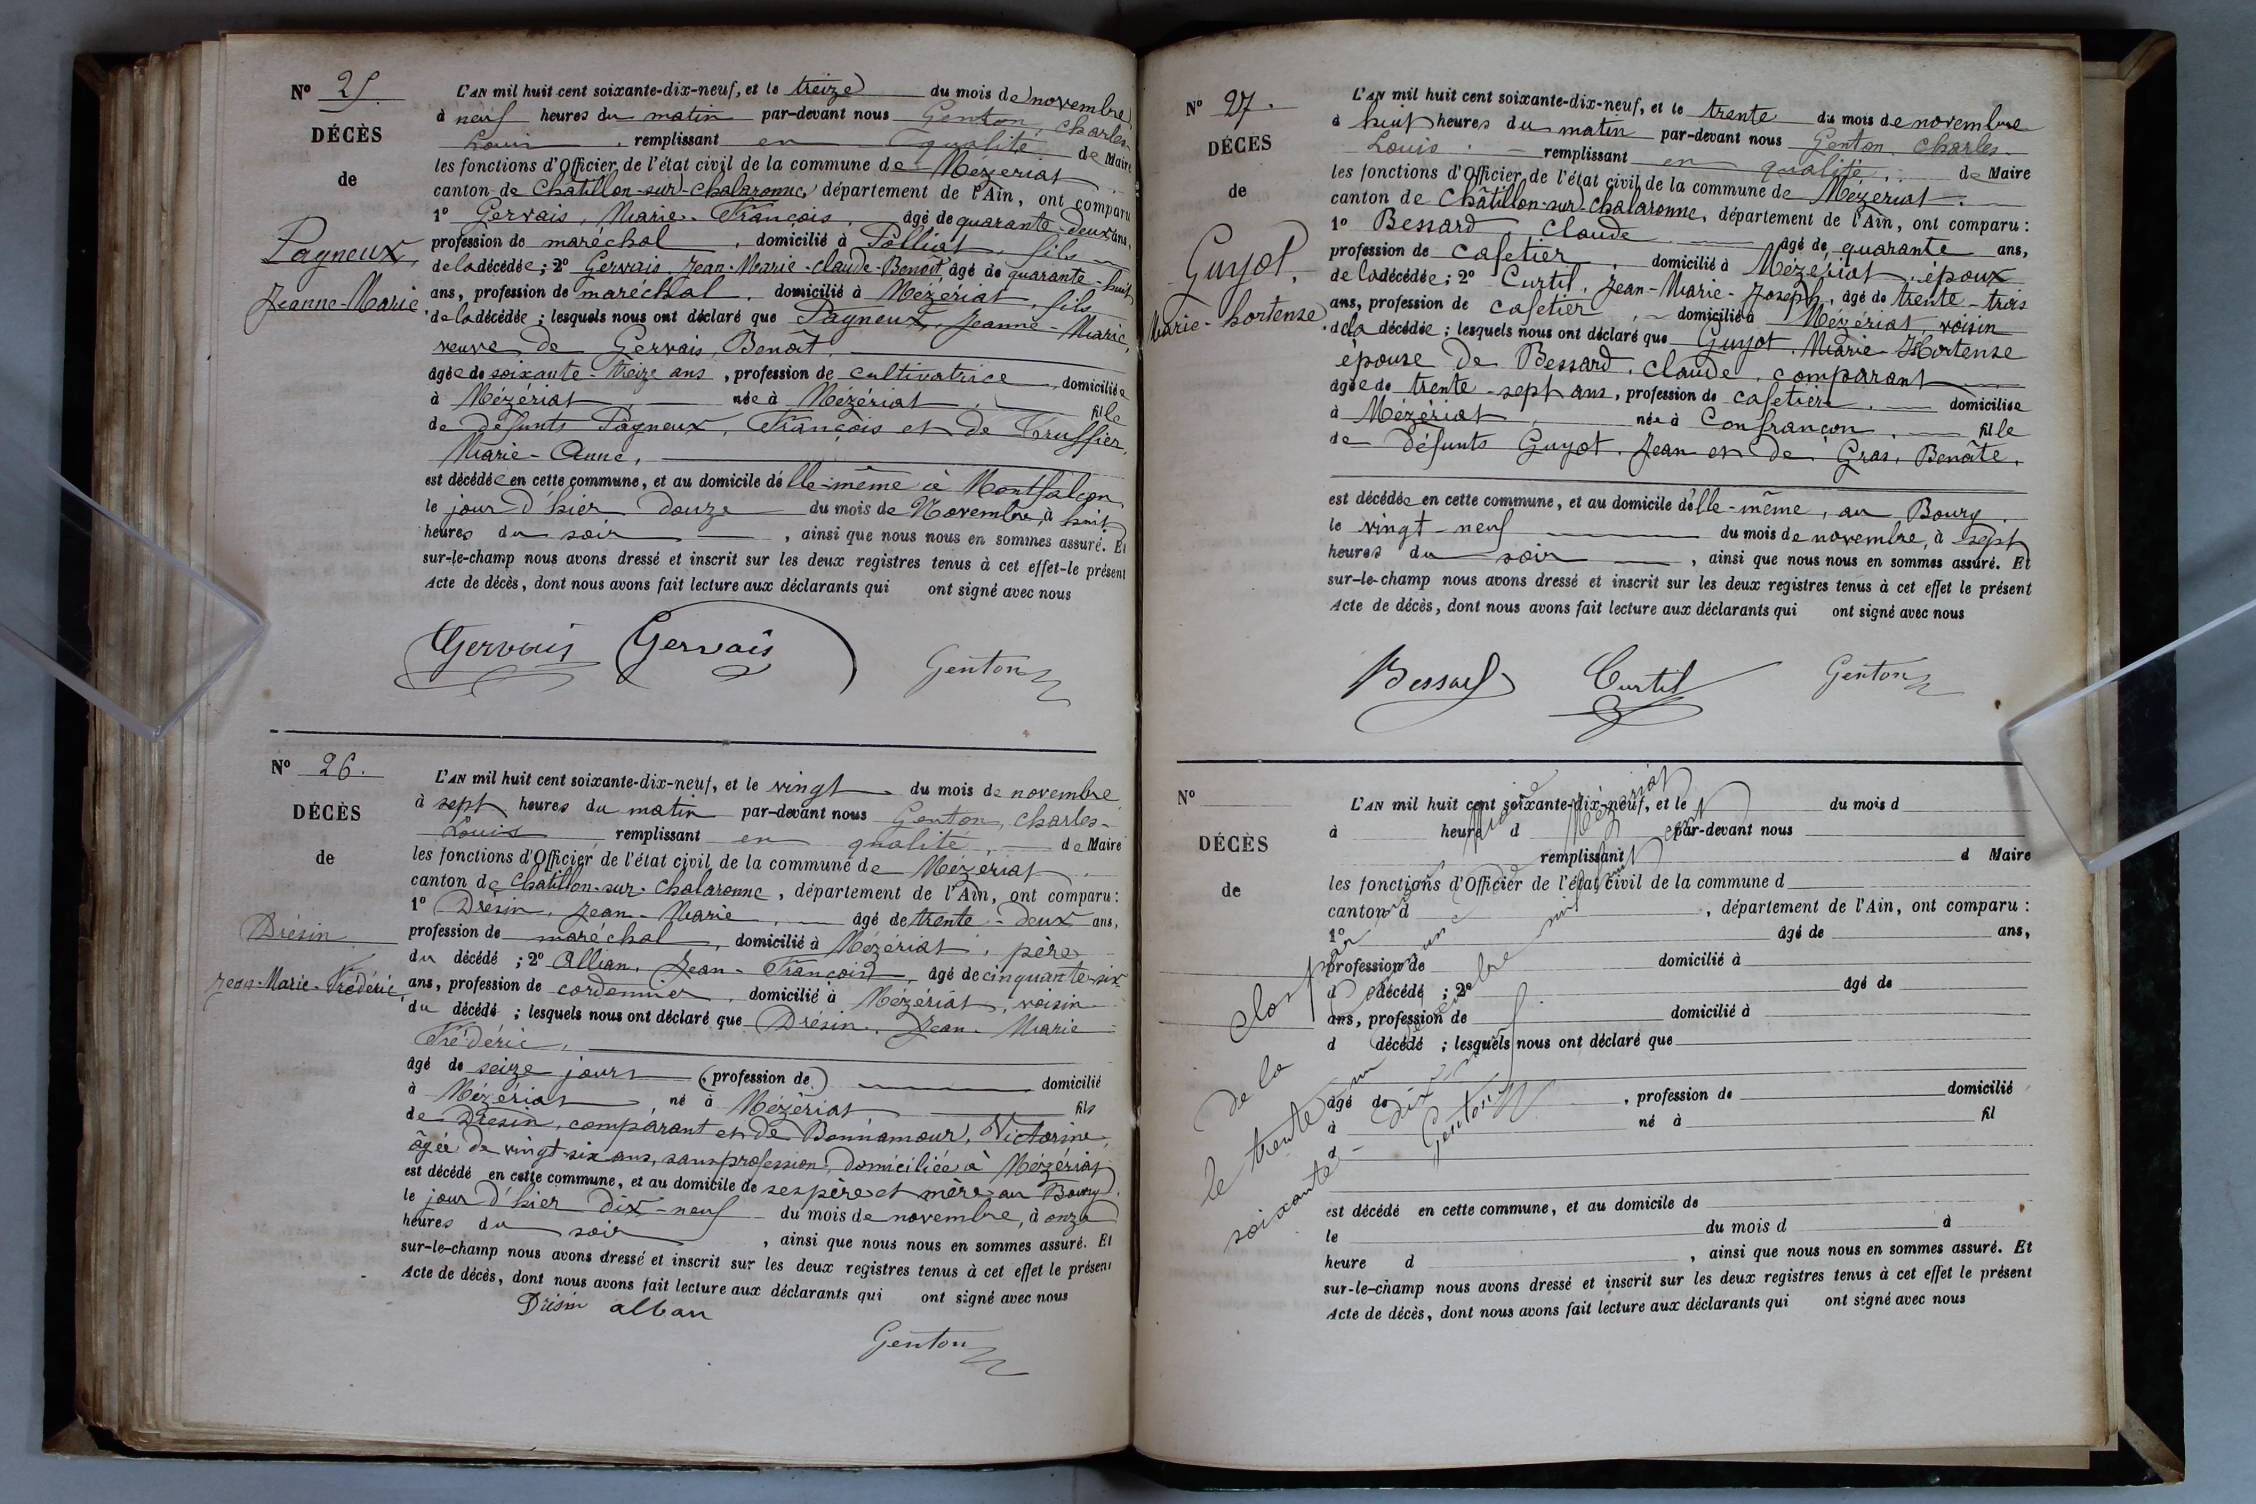 Nº 25.
DÉCÈS
de
Pagneux,
Jeanne-Marie.
L'AN mil huit cent soixante-dix-neuf, et le treize du mois de novembre
à neuf heures du matin par-devant nous Genton, Charles-
Louis, remplissant en qualité de Maire
les fonctions d'Officier de l'état civil de la commune de Mézériat
canton de Châtillon-sur-Chalaronne, département de l'Ain, ont comparu
1º Gervais, Marie-François, âgé de quarante-deux ans,
profession de maréchal, domicilié à Polliat, fils
de la décédée ; 2º Gervais, Jean-Marie-Claude-Benoît, âgé de quarante-huit
ans, profession de maréchal, domicilié à Mézériat, fils
de la décédée ; lesquels nous ont déclaré que Pagneux, Jeanne-Marie,
veuve de Gervais, Benoît,
âgée de soixante-treize ans, profession de cultivatrice, domiciliée
à Mézériat, née à Mézériat, fille
de défunts Pagneux, François et de Truffier,
Marie-Anne,
est décédée en cette commune, et au domicile d'elle-même à Montfalcon
le jour d'hier douze du mois de Novembre, à huit
heures du soir, ainsi que nous nous en sommes assuré. Et
sur-le-champ nous avons dressé et inscrit sur les deux registres tenus à cet effet le présent
Acte de décès, dont nous avons fait lecture aux déclarants qui ont signé avec nous
Gervais Gervais Genton
Nº 26.
DÉCÈS
de
Drésin
Jean-Marie-Frédéric,
L'AN mil huit cent soixante-dix-neuf, et le vingt du mois de novembre
à sept heures du matin par-devant nous Genton, Charles-
Louis remplissant en qualité, de Maire
les fonctions d'Officier de l'état civil de la commune de Mézériat
canton de Châtillon-sur-Chalaronne, département de l'Ain, ont comparu :
1º Drésin, Jean-Marie, âgé de trente-deux ans,
profession de maréchal, domicilié à Mézériat, père
du décédé ; 2º Alban, Jean-François, âgé de cinquante-six
ans, profession de cordonnier, domicilié à Mézériat, voisin
du décédé ; lesquels nous ont déclaré que Drésin, Jean-Marie-
Frédéric,
âgé de seize jours (profession de) domicilié
à Mézériat né à Mézériat fils
de Drésin, comparant et de Bonnamour, Victorine,
âgée de vingt-six ans, sans profession, domiciliée à Mézériat
est décédé en cette commune, et au domicile de ses père et mère au Bourg,
le jour d'hier dix-neuf du mois de novembre, à onze
heures du soir, ainsi que nous nous en sommes assuré. Et
sur-le-champ nous avons dressé et inscrit sur les deux registres tenus à cet effet le présent
Acte de décès, dont nous avons fait lecture aux déclarants qui ont signé avec nous
Drésin alban
Genton
Nº 27.
DÉCÈS
de
Guyot,
Marie-hortense.
L'AN mil huit cent soixante-dix-neuf, et le trente du mois de novembre
à huit heures du matin par-devant nous Genton, Charles-
Louis. remplissant en qualité, de Maire
les fonctions d'Officier de l'état civil de la commune de Mézériat.
canton de Châtillon-sur-Chalaronne, département de l'Ain, ont comparu :
1º Bessard, Claude âgé de quarante ans,
profession de cafetier, domicilié à Mézériat, époux
de la décédée ; 2º Curtil, Jean-Marie-Joseph, âgé de trente-trois
ans, profession de cafetier, domicilié à Mézériat, voisin
de la décédée ; lesquels nous ont déclaré que Guyot, Marie-Hortense
épouse de Bessard, Claude, comparant
âgée de trente-sept ans, profession de cafetière, domiciliée
à Mézériat née à Confrançon, fille
de défunts Guyot, Jean et de Gras, Benoîte,
est décédée en cette commune, et au domicile d'elle-même, au Bourg.
le vingt-neuf du mois de novembre, à sept
heures du soir, ainsi que nous nous en sommes assuré. Et
sur-le-champ nous avons dressé et inscrit sur les deux registres tenus à cet effet le présent
Acte de décès, dont nous avons fait lecture aux déclarants qui ont signé avec nous
Bessard Curtil Genton
Nº
DÉCÈS
de
L'AN mil huit cent soixante-dix-neuf, et le du mois d
à heure d par-devant nous
remplissant d Maire
les fonctions d'Officier de l'état civil de la commune d
canton d, département de l'Ain, ont comparu :
1º âgé de ans,
profession de domicilié à
d décédé ; 2º âgé de
ans, profession de domicilié à
d décédé ; lesquels nous ont déclaré que
âgé de, profession de domicilié
à né à fil
d
est décédé en cette commune, et au domicile de
le du mois d à
heure d, ainsi que nous nous en sommes assuré. Et
sur-le-champ nous avons dressé et inscrit sur les deux registres tenus à cet effet le présent
Acte de décès, dont nous avons fait lecture aux déclarants qui ont signé avec nous
clos par nous Maire
de la Commune de Mézériat
le trente un décembre mil huit cent
soixante-dix neuf
Genton